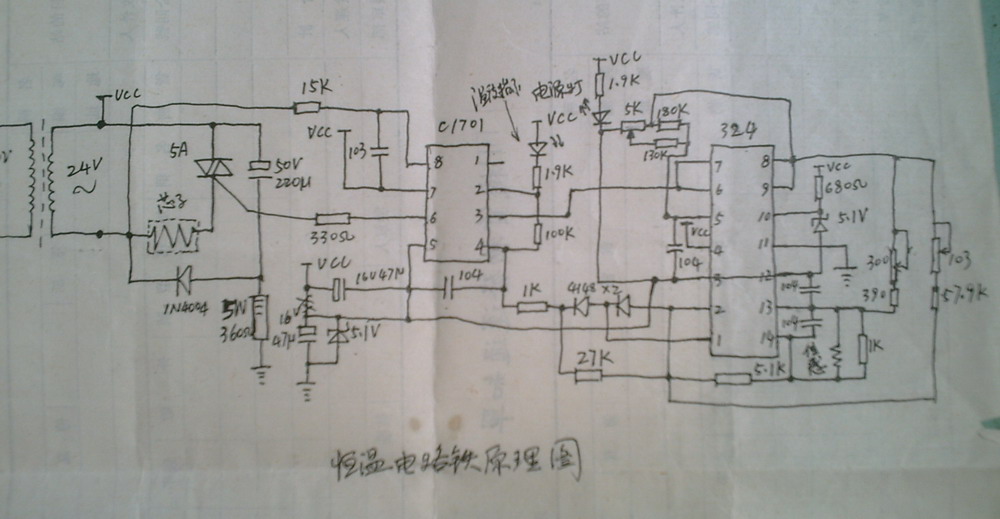 VCC
15K
5A
24V
~
50V
220μ
330Ω
1N4004
5W
360Ω
VCC
103
C1701
8
7
6
5
1
2
3
4
VCC
16V47μ
16V
47μ
5.1V
104
电源灯
VCC
1.9K
100K
1K
4148 X2
27K
VCC
1.9K
5K
180K
130K
324
7
6
5
4
3
2
1
8
9
10
11
12
13
14
VCC
104
VCC
680Ω
5.1V
104
104
5.1K
1K
300
390
103
57.9K
恒温电路铁原理图